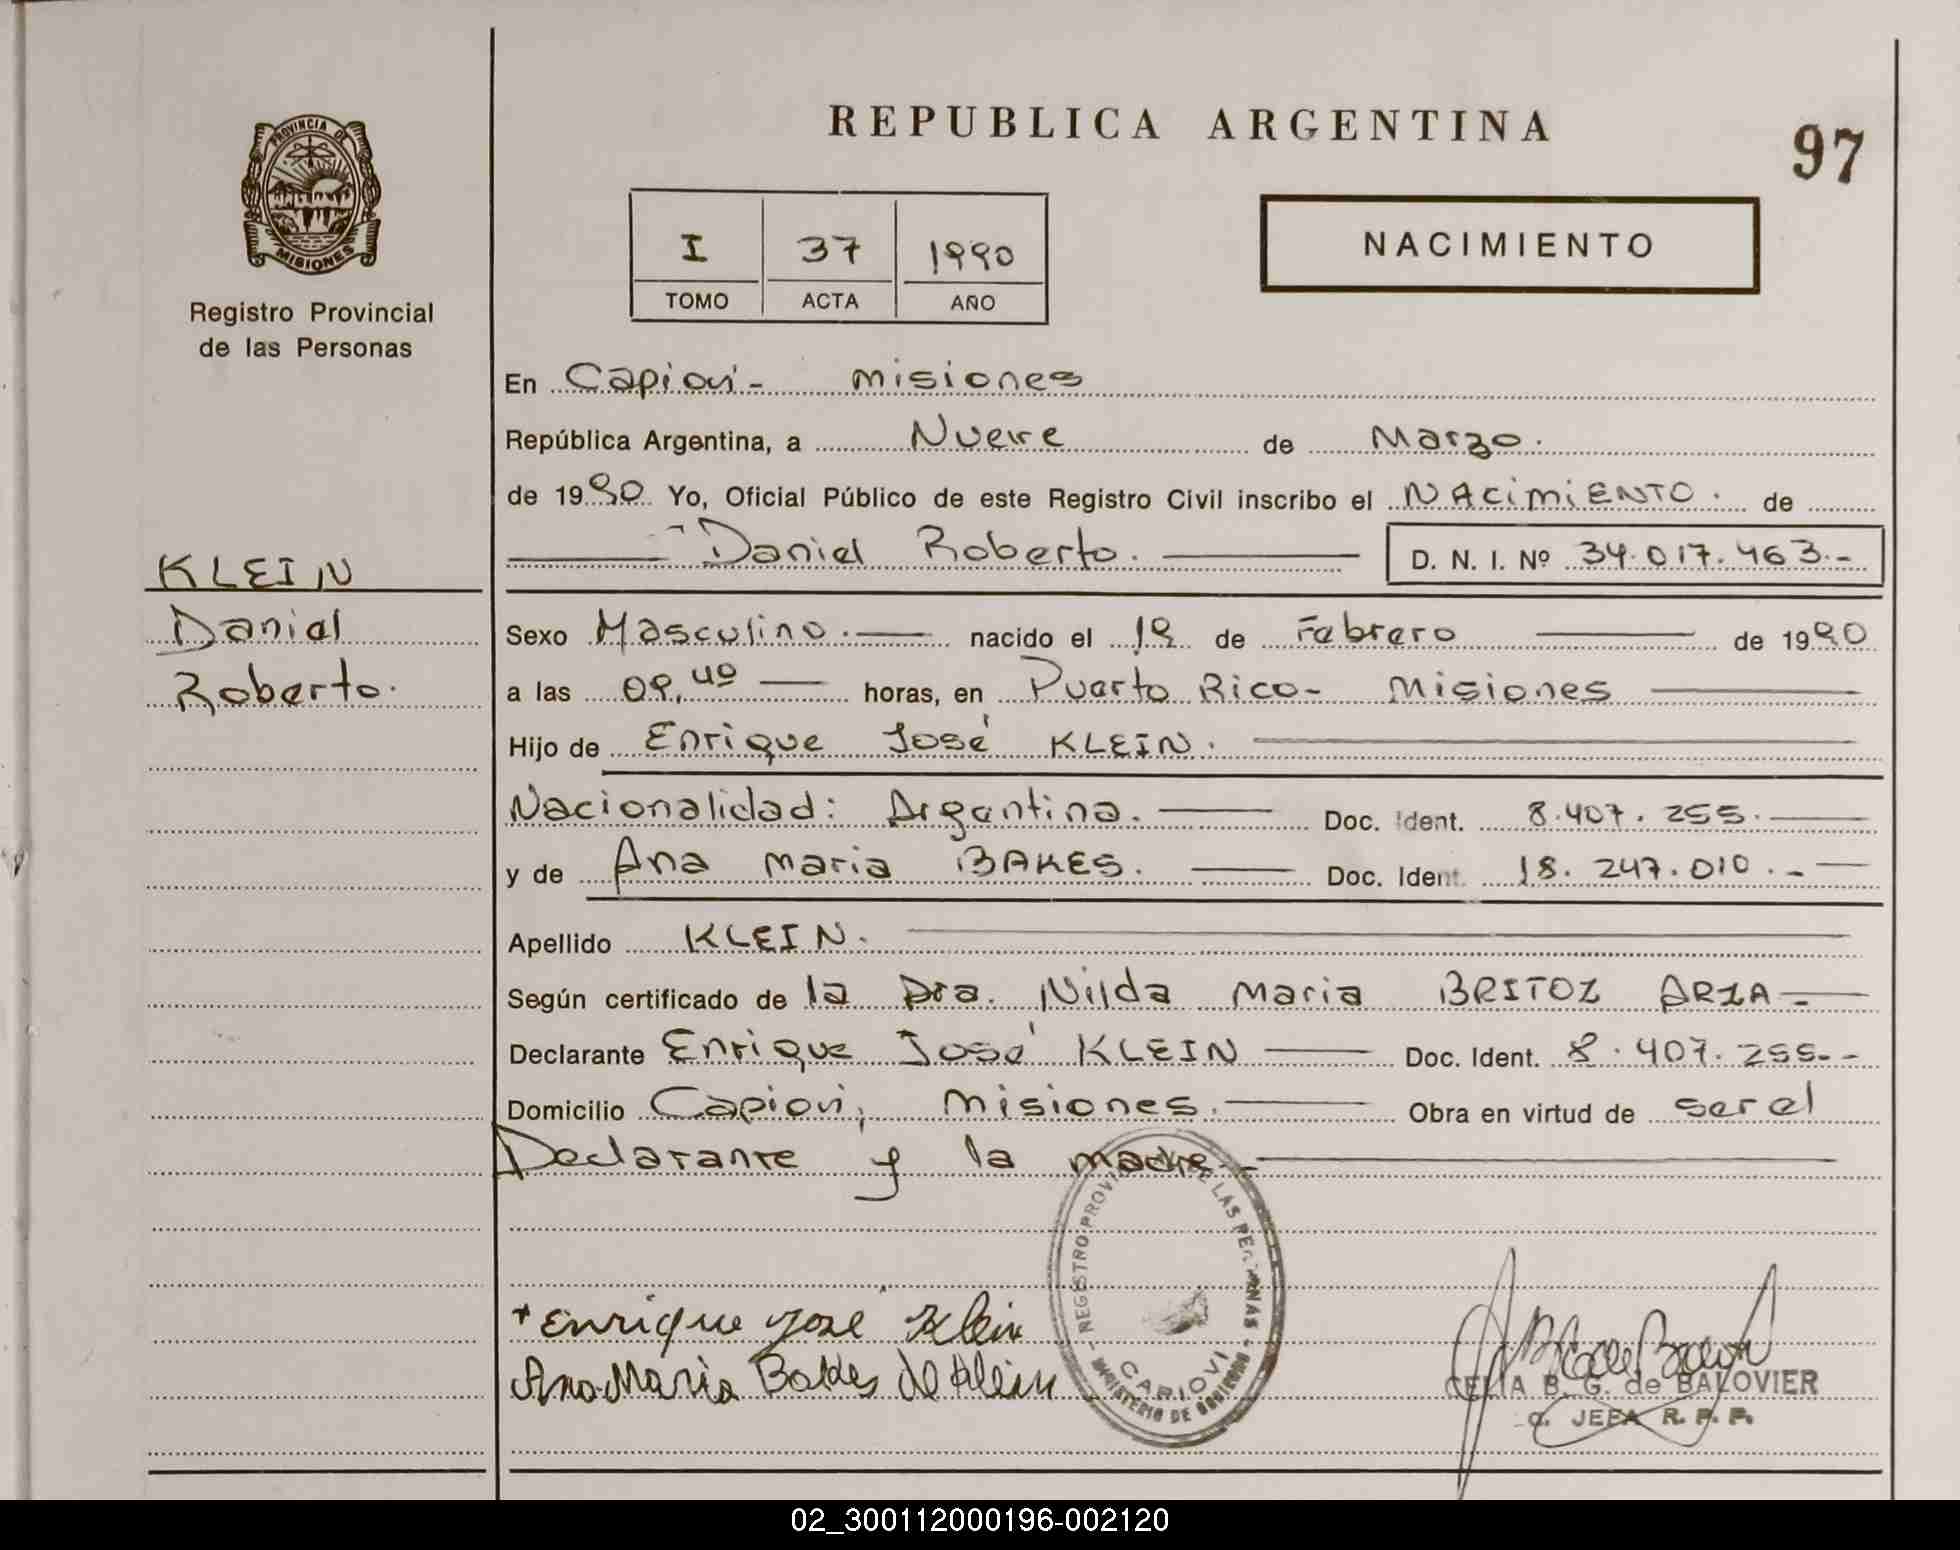 REPUBLICA ARGENTINA
97
PROVINCIA DE MISIONES
Registro Provincial
de las Personas
I 37 1990
TOMO ACTA AÑO
NACIMIENTO
En Capioví - Misiones
República Argentina, a Nueve de Marzo.
de 1990 Yo, Oficial Público de este Registro Civil inscribo el NACIMIENTO. de
Daniel Roberto. D. N. I. Nº 34.017.463.-
KLEIN
Daniel
Roberto.
Sexo Masculino. nacido el 19 de Febrero de 1990
a las 09,40 horas, en Puerto Rico - Misiones
Hijo de Enrique José KLEIN.
Nacionalidad: Argentina. Doc. Ident. 8.407.255.
y de Ana Maria BAKES. Doc. Ident. 18.247.010.-
Apellido KLEIN.
Según certificado de la Dra. Nilda Maria BRITOZ ARZA -
Declarante Enrique José KLEIN Doc. Ident. 8.407.255.-
Domicilio Capioví, Misiones. Obra en virtud de ser el
Declarante y la madre
REGISTRO PROVINCIAL DE LAS PERSONAS
CAPIOVI
MINISTERIO DE GOBIERNO
+ Enrique José Klein
Ana Maria Bakes de Klein
CELIA B. G. de BALOVIER
JEFA R. P. P.
02_300112000196-002120